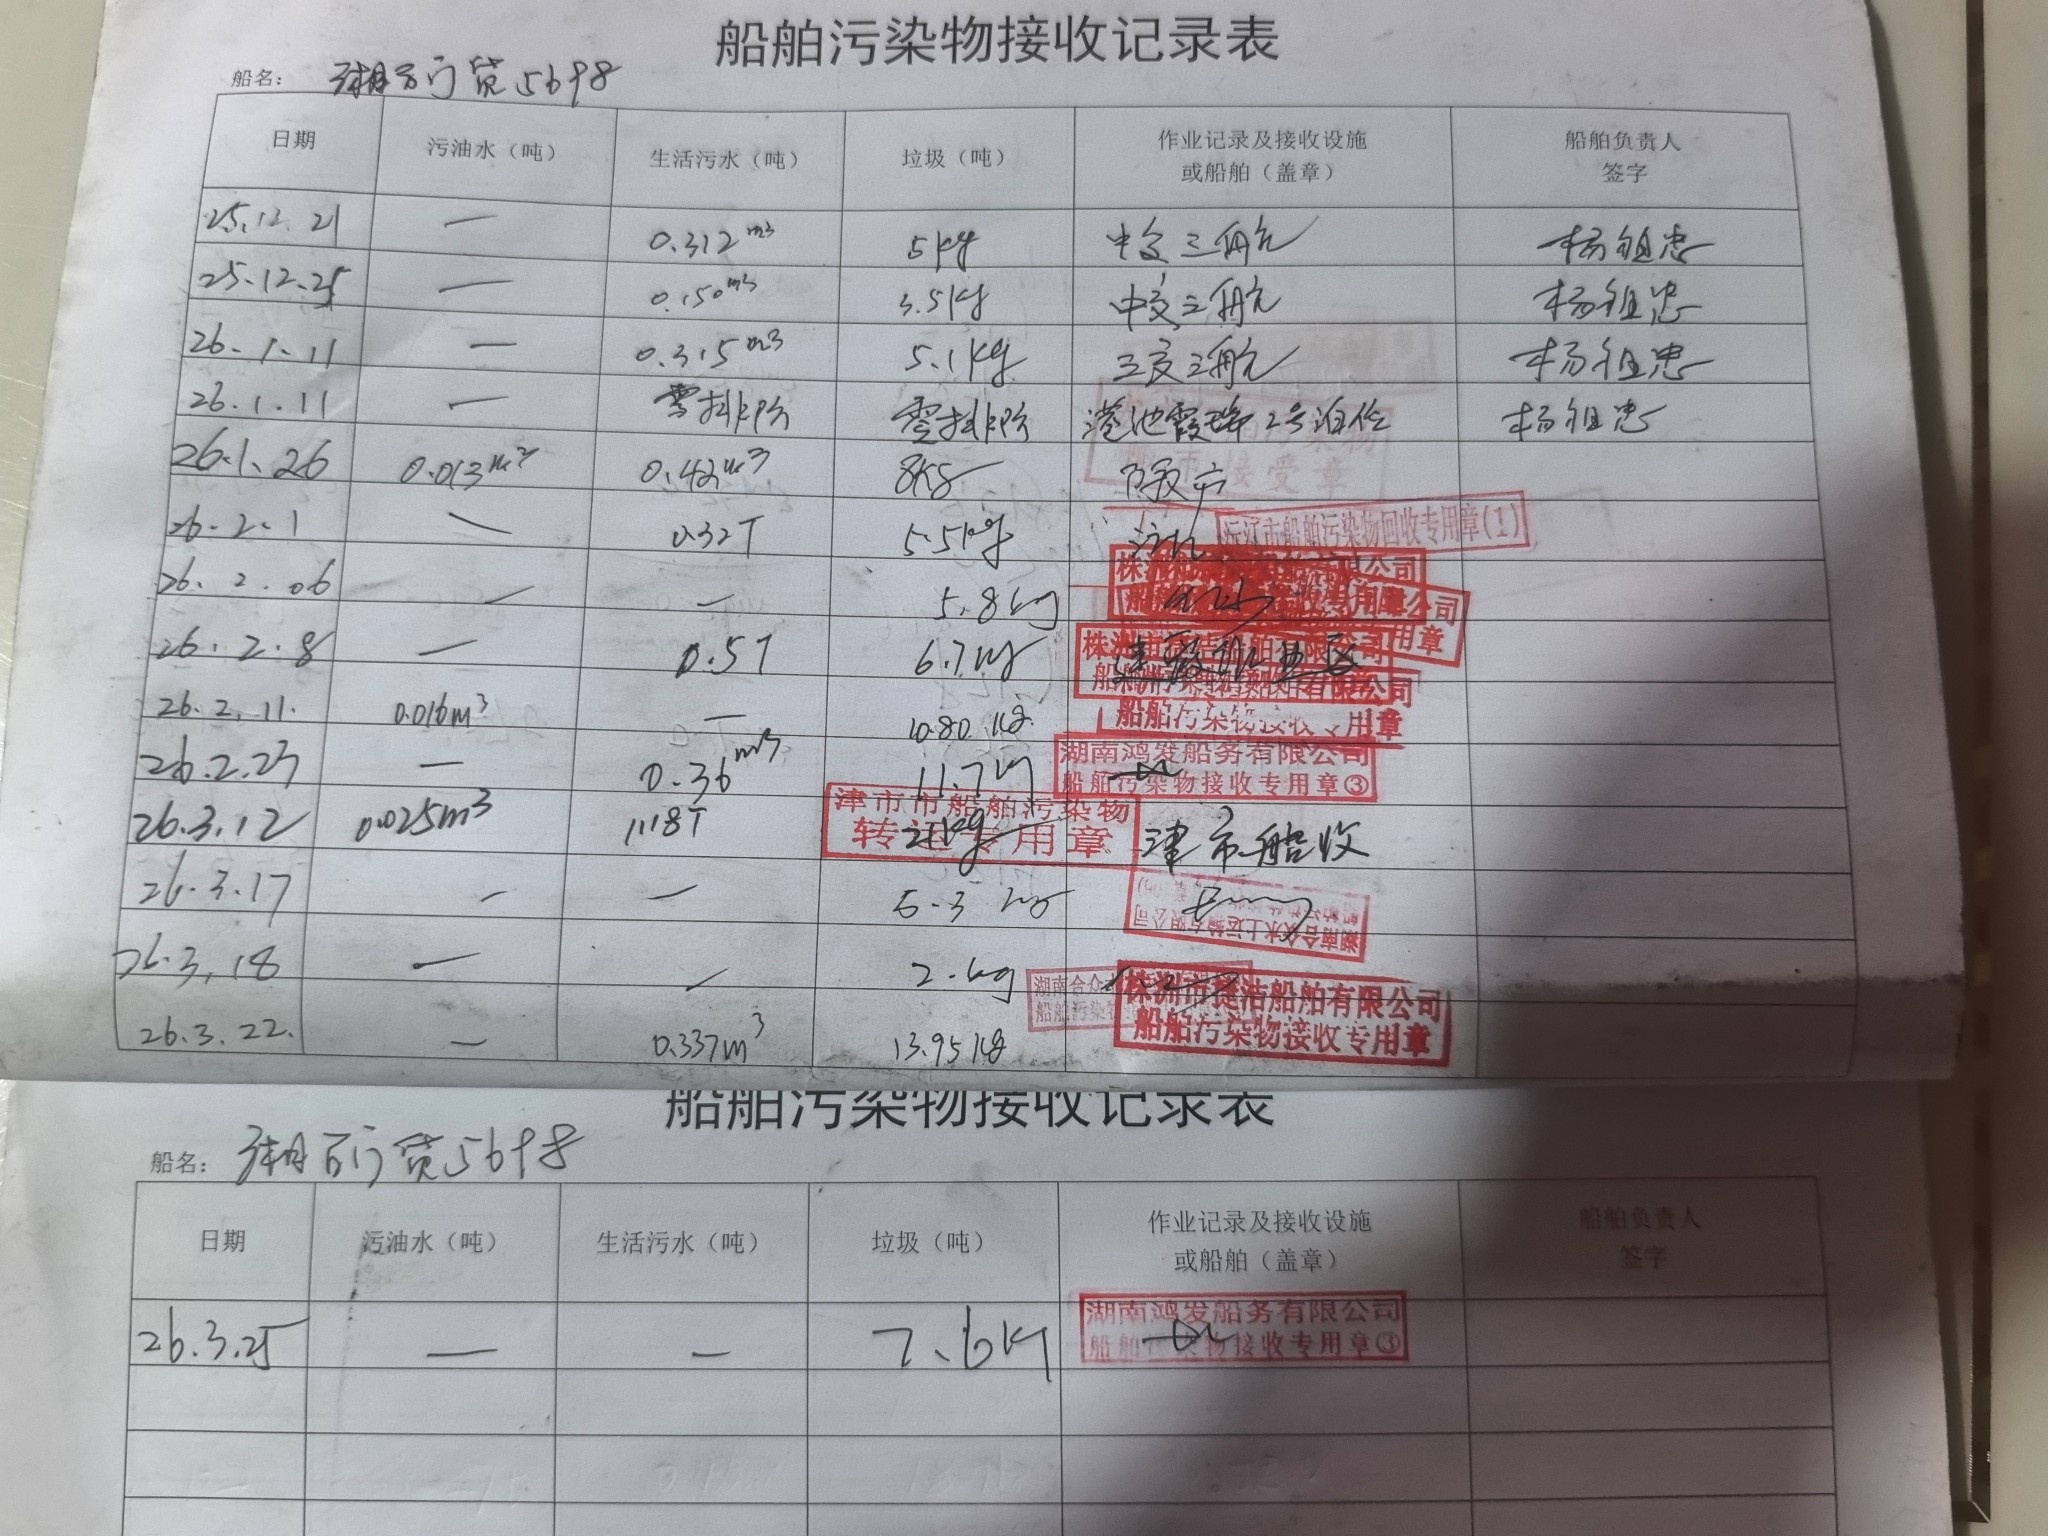 船舶污染物接收记录表
船名： 湘石门货5698
日期 污油水（吨） 生活污水（吨） 垃圾（吨） 作业记录及接收设施或船舶（盖章） 船舶负责人签字
25.12.21 — 0.312m³ 5kg 中交三航 杨祖忠
25.12.25 — 0.150m³ 3.5kg 中交三航 杨祖忠
26.1.11 — 0.315m³ 5.1kg 三航 杨祖忠
26.1.11 — 零排放 零排放 港池霞 2号泊位 杨祖忠
26.1.26 0.013m³ 0.42m³ 8kg 接受章
26.2.1 — 0.32T 5.5kg 沅江市船舶污染物回收专用章(1)
26.2.06 — — 5.8kg
26.2.8 — 0.5T 6.7kg
26.2.11. 0.016m³ — 10.80kg 船舶污染物接收专用章
26.2.23 — 0.36m³ 11.7kg 湖南鸿发船务有限公司
船舶污染物接收专用章③
26.3.12 0.025m³ 1.18T 津市市船舶污染物
转运专用章 津市船收
26.3.17 — — 5.3kg 湖南合众水上运输有限公司
26.3.18 — — 2.kg 湖南合众
26.3.22. — 0.337m³ 13.95kg 株洲市 洁船舶有限公司
船舶污染物接收专用章
船舶污染物接收记录表
船名： 湘石门货5698
日期 污油水（吨） 生活污水（吨） 垃圾（吨） 作业记录及接收设施或船舶（盖章） 船舶负责人签字
26.3.25 — — 7.6kg 湖南鸿发船务有限公司
船舶污染物接收专用章③